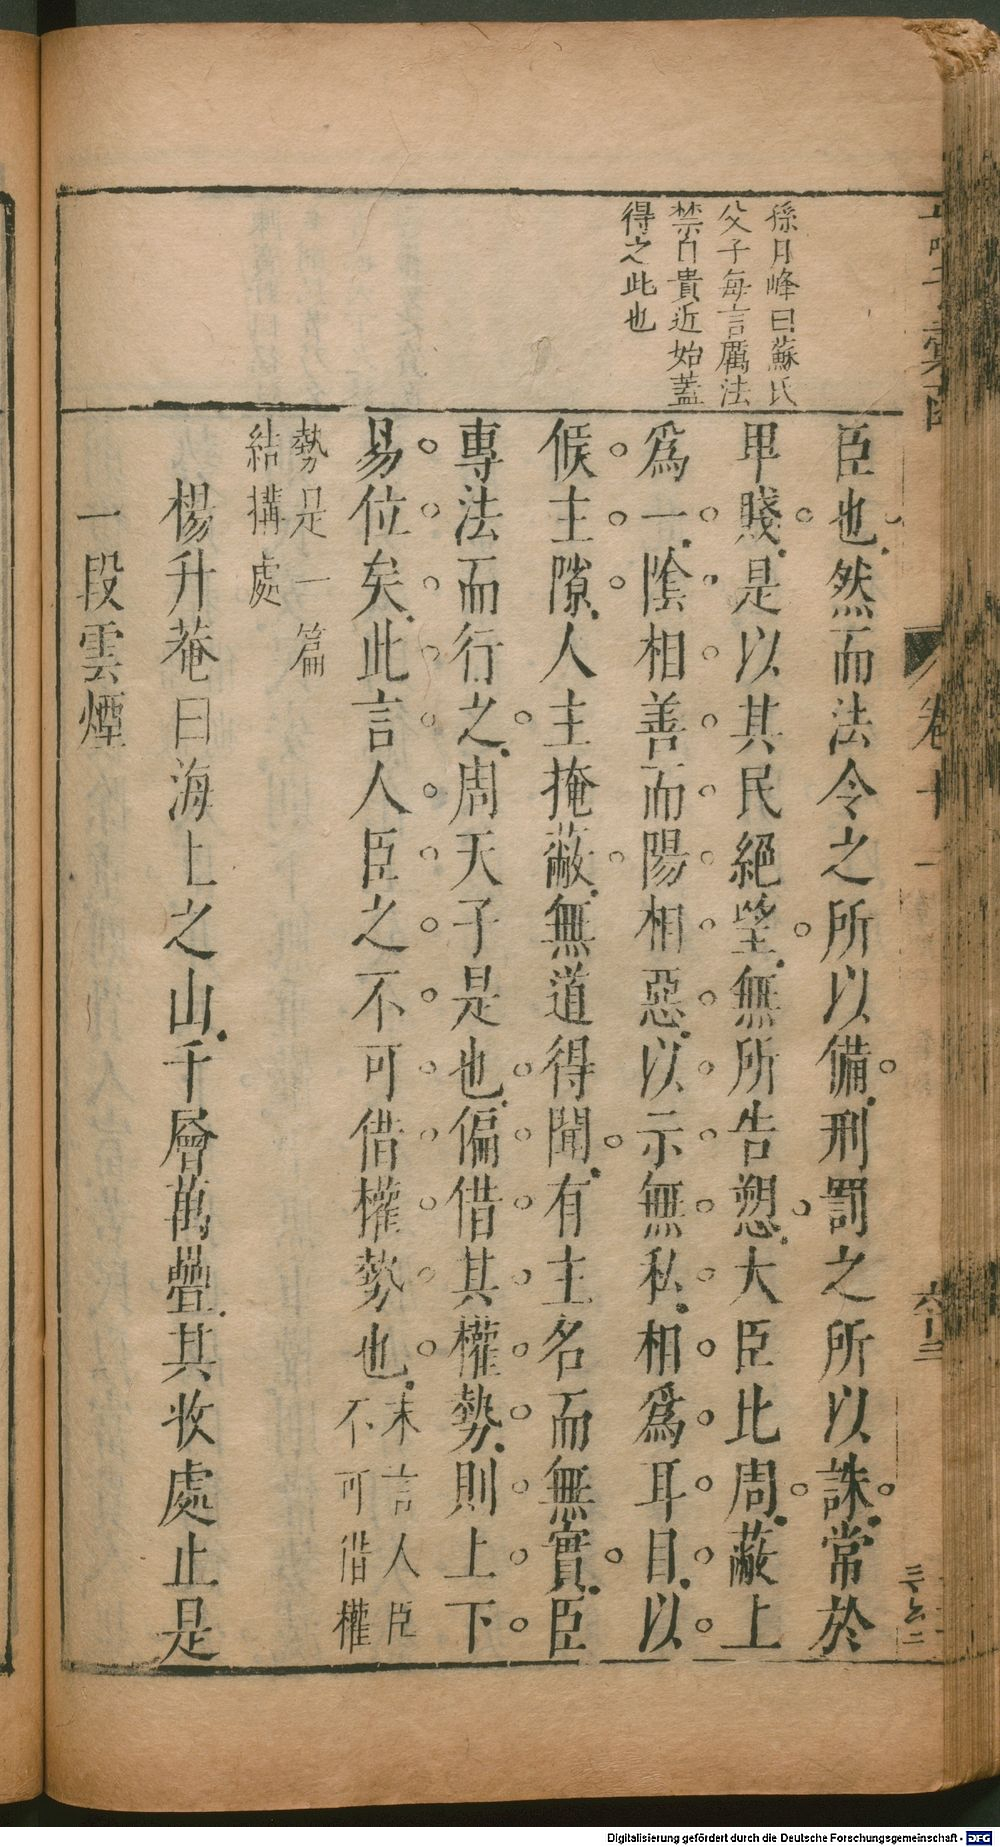 孫月峰曰蘇氏
父子每言厲法
禁自貴近始蓋
得之此也
臣也然而法令之所以備刑罰之所以誅常於
卑賤是以其民絕望無所告愬大臣比周蔽上
爲一陰相善而陽相惡以示無私相爲耳目以
候主隙人主掩蔽無道得聞有主名而無實臣
專法而行之周天子是也偏借其權勢則上下
易位矣此言人臣之不可借權勢也末言人臣
不可借權
勢是一篇
結構處
楊升菴曰海上之山千層萬疊其收處止是
一段雲煙
卷十一
六十三
Digitalisierung gefördert durch die Deutsche Forschungsgemeinschaft - DFG